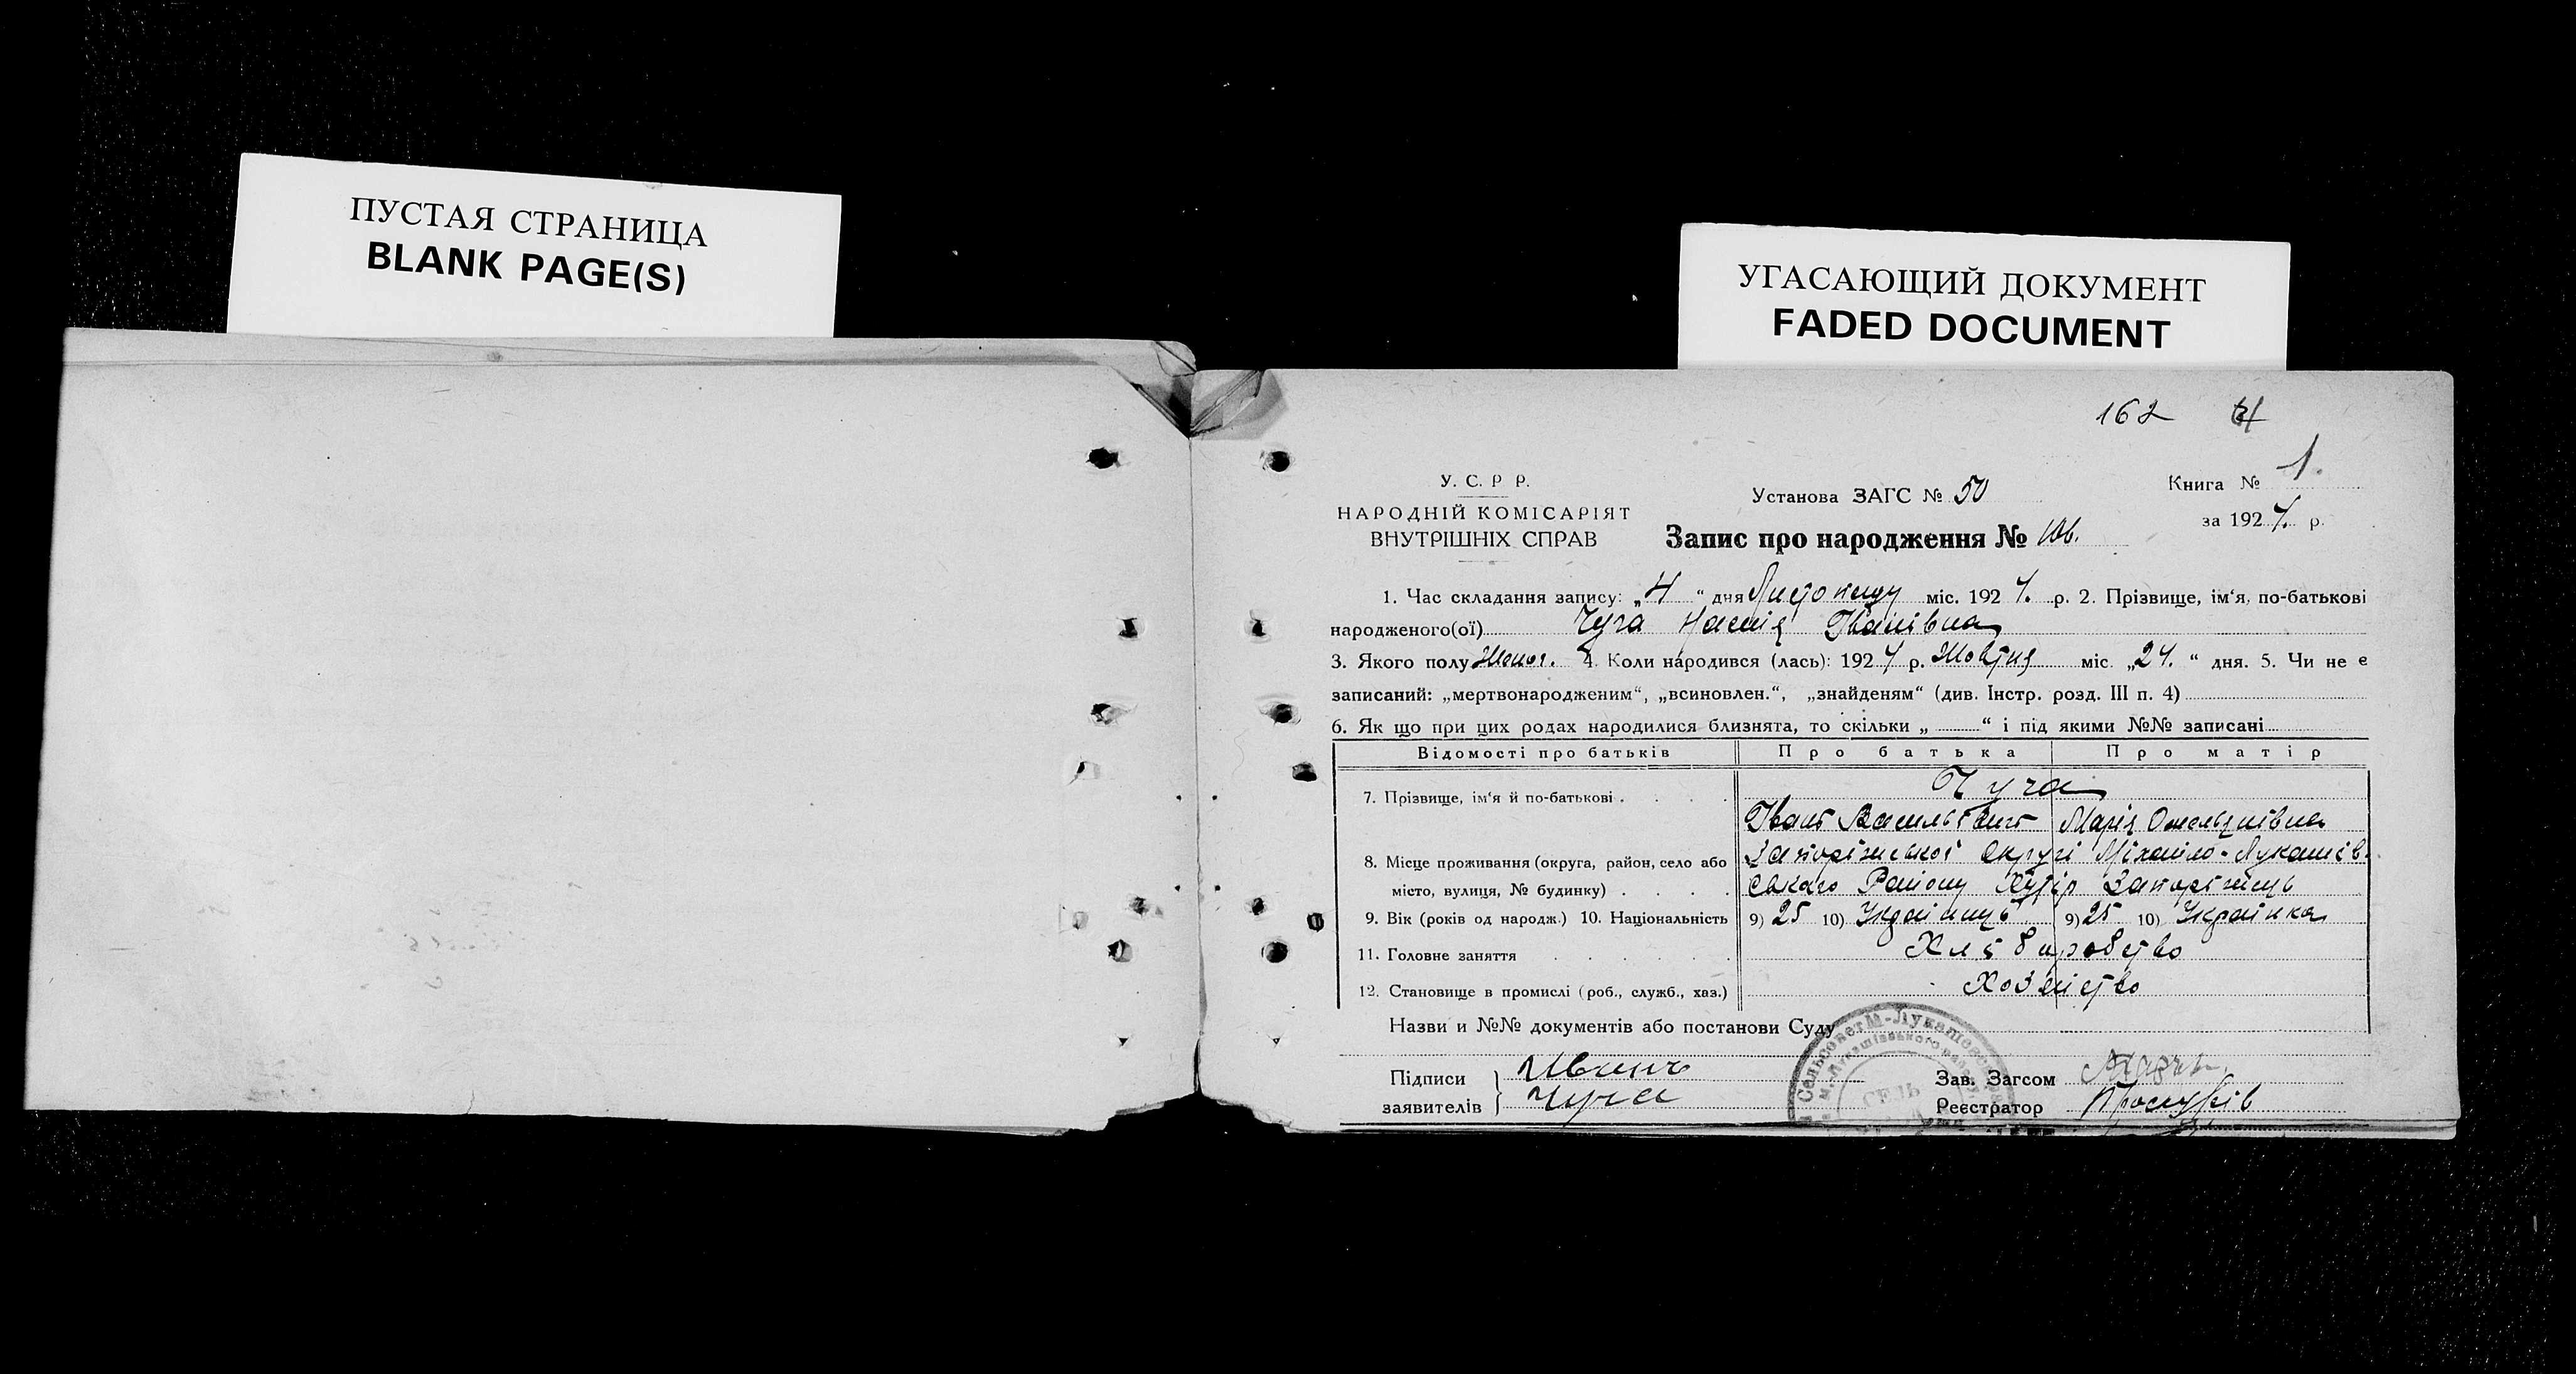 ПУСТАЯ СТРАНИЦА
BLANK PAGE(S)
УГАСАЮЩИЙ ДОКУМЕНТ
FADED DOCUMENT
162
У. С. Р Р.
НАРОДНІЙ КОМІСАРІЯТ
ВНУТРІШНІХ СПРАВ
Установа ЗАГС № 50
Запис про народження № 106.
Книга № 1.
за 1927. р.
1. Час складання запису: „4“ дня Листопаду міс. 1927. р. 2. Прізвище, ім‘я, по-батькові
народженого(ої) Чуча Настія Іванівна
3. Якого полу Жіноч. 4. Коли народився (лась): 1927 р. Жовтня міс. „24.“ дня. 5. Чи не є
записаний: „мертвонародженим“, „всиновлен.“, „знайденям“ (див. Інстр. розд. III п. 4)
6. Як що при цих родах народилися близнята, то скільки „ “ і під якими №№ записані
Відомості про батьків Про батька Про матір
7. Прізвище, ім‘я й по-батькові . . . . Чуча
Іван Васильевич Марія Омельянівна
8. Місце проживання (округа, район, село або Запоріжської Округі Міхайло-Лукашів-
місто, вулиця, № будинку) . . . . ського Району Хутір Запоріжець
9. Вік (років од народж.) 10. Національність 9) 25 10) Українець 9) 25 10) Українка
11. Головне заняття . . . . . Хліборобство
12. Становище в промислі (роб., служб., хаз.) Хозяйство
Назви и №№ документів або постанови Суду
Сельсовет М-Лукашевск
М.-Лукашівського району
СЕЛЬ
Підписи Иванъ
заявителів Чуча
Зав. Загсом
Реєстратор